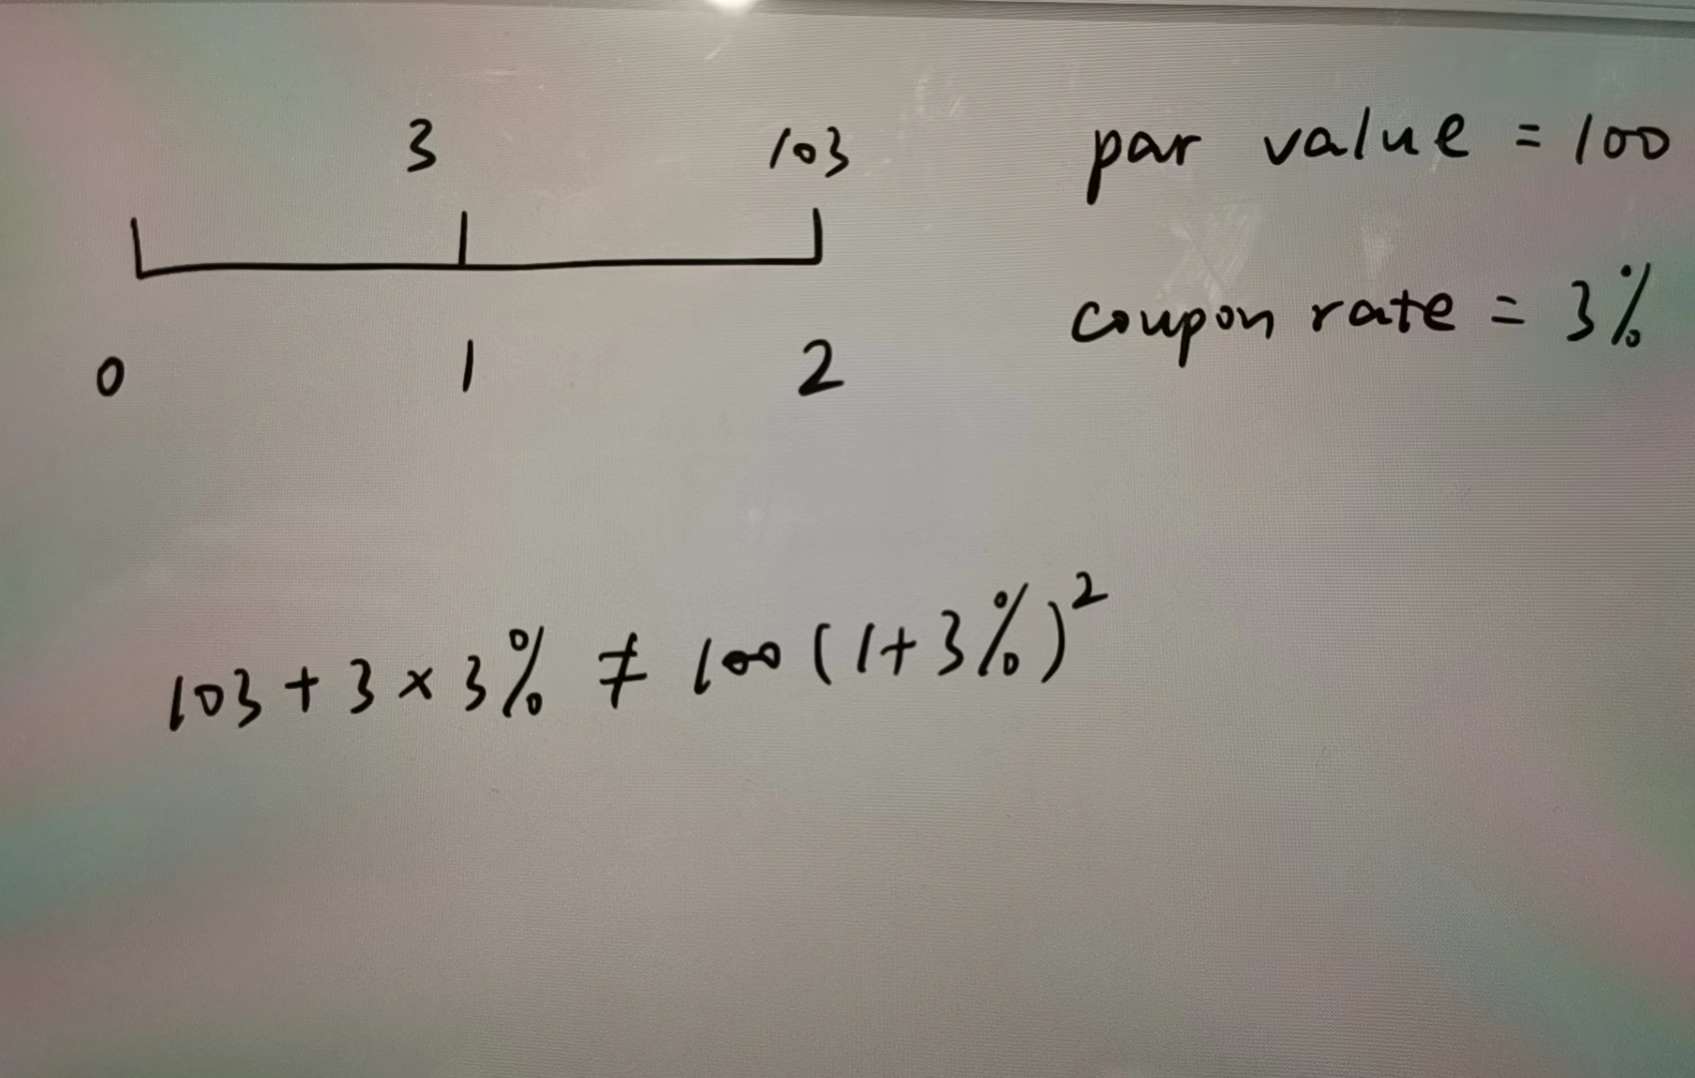 3 103 par value = 100
0 1 2 coupon rate = 3%
103 + 3 × 3% ≠ 100 (1+3%)²